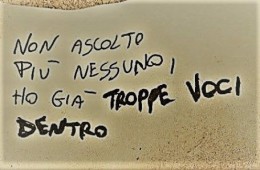 NON ASCOLTO
PIÙ NESSUNO,
HO GIÀ TROPPE VOCI
DENTRO